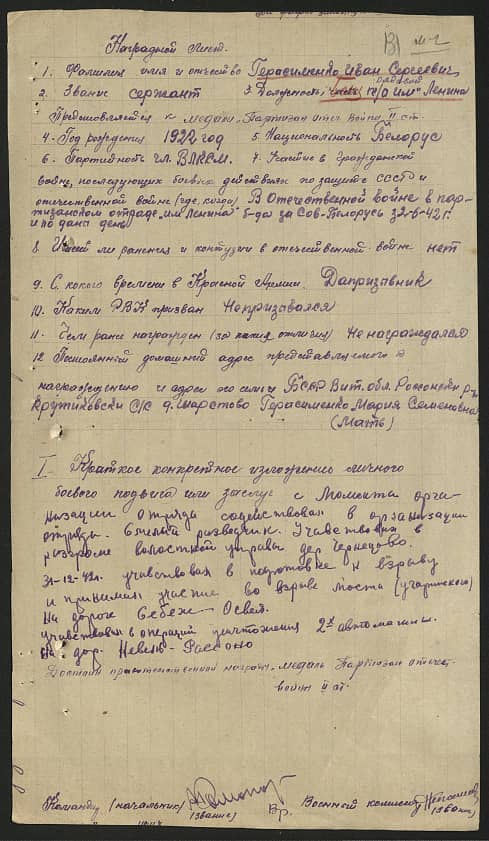 Наградной лист.
1. Фамилия имя и отчество Герасименко Иван Сергеевич
2. Звание сержант 3. Должность рядовой п/о им" Ленина
Представляется к медали "Партизан отеч. войны" II ст.
4. Год рождения 1922 год 5. Национальность Белорус
6. Партийность чл. ВЛКСМ. 7. Участие в гражданской
войне, последующих боевых действиях по защите СССР и
отечественной войне (где, когда) В Отечественной войне в пар-
тизанском отряде "им Ленина" б-да за Сов-Беларусь з 2-6-42 г.
и по дана день
8. Имеет ли ранения и контузии в отечественной войне нет
9. С какого времени в Красной Армии Дапризавник
10. Каким РВК призван Непризавался
11. Чем ранее награжден (за какие отличия) Не награждался
12 Постоянный домашний адрес представляемого к
награждению и адрес его семьи БССР Вит. обл. Россонски р-н
Крутиковски С/С д. Шарстово Герасименко Мария Семеновна
(Мать)
I. Краткое конкретное изложению личного
боевого подвига или заслуг с момента орга-
низации отряда содействовал в организации
отряда. Смелый разведчик. Учавствовал в
разгроме волостной управы дер Чернецово.
31-12-42г. учавствовал в подготовке к взрыву
и принимал участие во взрыве моста
на дороге Себеж - Освея.
учавствовал в операций уничтожения 2х автомашин.
на дор. Невель - Рассоно
Достоин правительственной награды, медаль Партизан отечест.
войны II ст.
Командир (начальник)
(звание)
Вр. Военной комиссии
(звание)